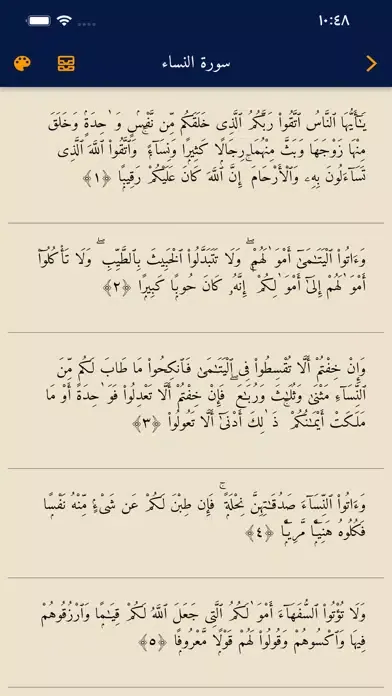 ١٠:٤٨
سورة النساء
يَـٰٓأَيُّهَا ٱلنَّاسُ ٱتَّقُوا۟ رَبَّكُمُ ٱلَّذِى خَلَقَكُم مِّن نَّفْسٍۢ وَٰحِدَةٍۢ وَخَلَقَ
مِنْهَا زَوْجَهَا وَبَثَّ مِنْهُمَا رِجَالًۭا كَثِيرًۭا وَنِسَآءًۭ ۚ وَٱتَّقُوا۟ ٱللَّهَ ٱلَّذِى
تَسَآءَلُونَ بِهِۦ وَٱلْأَرْحَامَ ۚ إِنَّ ٱللَّهَ كَانَ عَلَيْكُمْ رَقِيبًۭا ﴿١﴾
وَءَاتُوا۟ ٱلْيَتَـٰمَىٰٓ أَمْوَٰلَهُمْ ۖ وَلَا تَتَبَدَّلُوا۟ ٱلْخَبِيثَ بِٱلطَّيِّبِ ۖ وَلَا تَأْكُلُوٓا۟
أَمْوَٰلَهُمْ إِلَىٰٓ أَمْوَٰلِكُمْ ۚ إِنَّهُۥ كَانَ حُوبًۭا كَبِيرًۭا ﴿٢﴾
وَإِنْ خِفْتُمْ أَلَّا تُقْسِطُوا۟ فِى ٱلْيَتَـٰمَىٰ فَٱنكِحُوا۟ مَا طَابَ لَكُم مِّنَ
ٱلنِّسَآءِ مَثْنَىٰ وَثُلَـٰثَ وَرُبَـٰعَ ۖ فَإِنْ خِفْتُمْ أَلَّا تَعْدِلُوا۟ فَوَٰحِدَةً أَوْ مَا
مَلَكَتْ أَيْمَـٰنُكُمْ ۚ ذَٰلِكَ أَدْنَىٰٓ أَلَّا تَعُولُوا۟ ﴿٣﴾
وَءَاتُوا۟ ٱلنِّسَآءَ صَدُقَـٰتِهِنَّ نِحْلَةًۭ ۚ فَإِن طِبْنَ لَكُمْ عَن شَىْءٍۢ مِّنْهُ نَفْسًۭا
فَكُلُوهُ هَنِيٓـًۭٔا مَّرِيٓـًۭٔا ﴿٤﴾
وَلَا تُؤْتُوا۟ ٱلسُّفَهَآءَ أَمْوَٰلَكُمُ ٱلَّتِى جَعَلَ ٱللَّهُ لَكُمْ قِيَـٰمًۭا وَٱرْزُقُوهُمْ
فِيهَا وَٱكْسُوهُمْ وَقُولُوا۟ لَهُمْ قَوْلًۭا مَّعْرُوفًۭا ﴿٥﴾